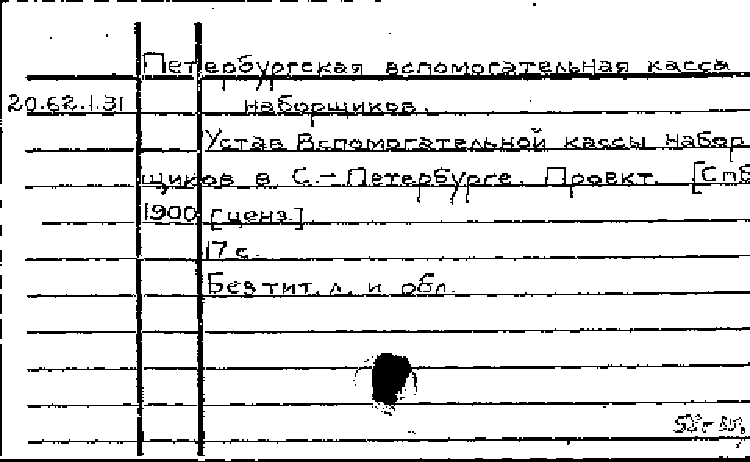 Петербургская вспомогательная касса
20.62.1.31 наборщиков.
Устав Вспомогательной кассы набор
щиков в С.-Петербурге. Проект. [Спб
1900 [ценз.]
17 с.
Без тит. л. и обл.